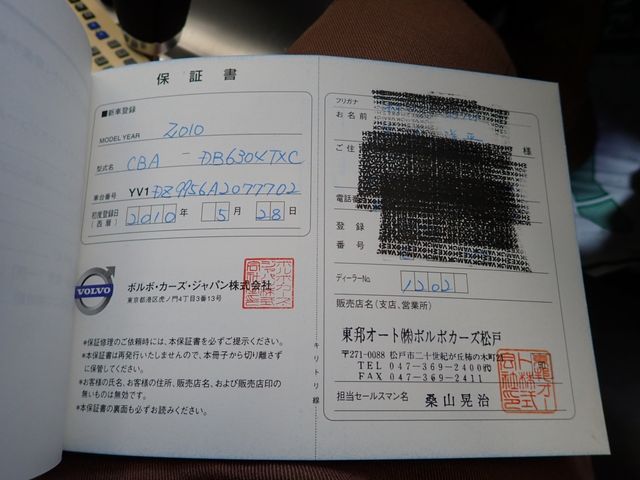 保証書
■新車登録
MODEL YEAR 2010
型式名 CBA - DB6304TXC
車台番号 YV1DZ9956A2077702
初度登録日(西暦) 2010年 5月 28日
VOLVO
ボルボ・カーズ・ジャパン株式会社
東京都港区虎ノ門4丁目3番13号
*保証修理のご依頼時には、本保証書を必ずご提示ください。
*本保証書は再発行いたしませんので、本冊子から切り離さず
に保管してください。
*お客様の氏名、お客様の住所、販売店名、および販売店印の
無いものは無効です。
*本保証書の裏面も必ずお読みください。
キリトリ線
フリガナ
お名前
様
ご住
電話番
登録
番号
ディーラーNo. 1202
販売店名(支店、営業所)
東邦オート㈱ボルボカーズ松戸
〒271-0088 松戸市二十世紀が丘柿の木町
TEL 047-369-2400㈹
FAX 047-369-2411
担当セールスマン名 桑山晃治